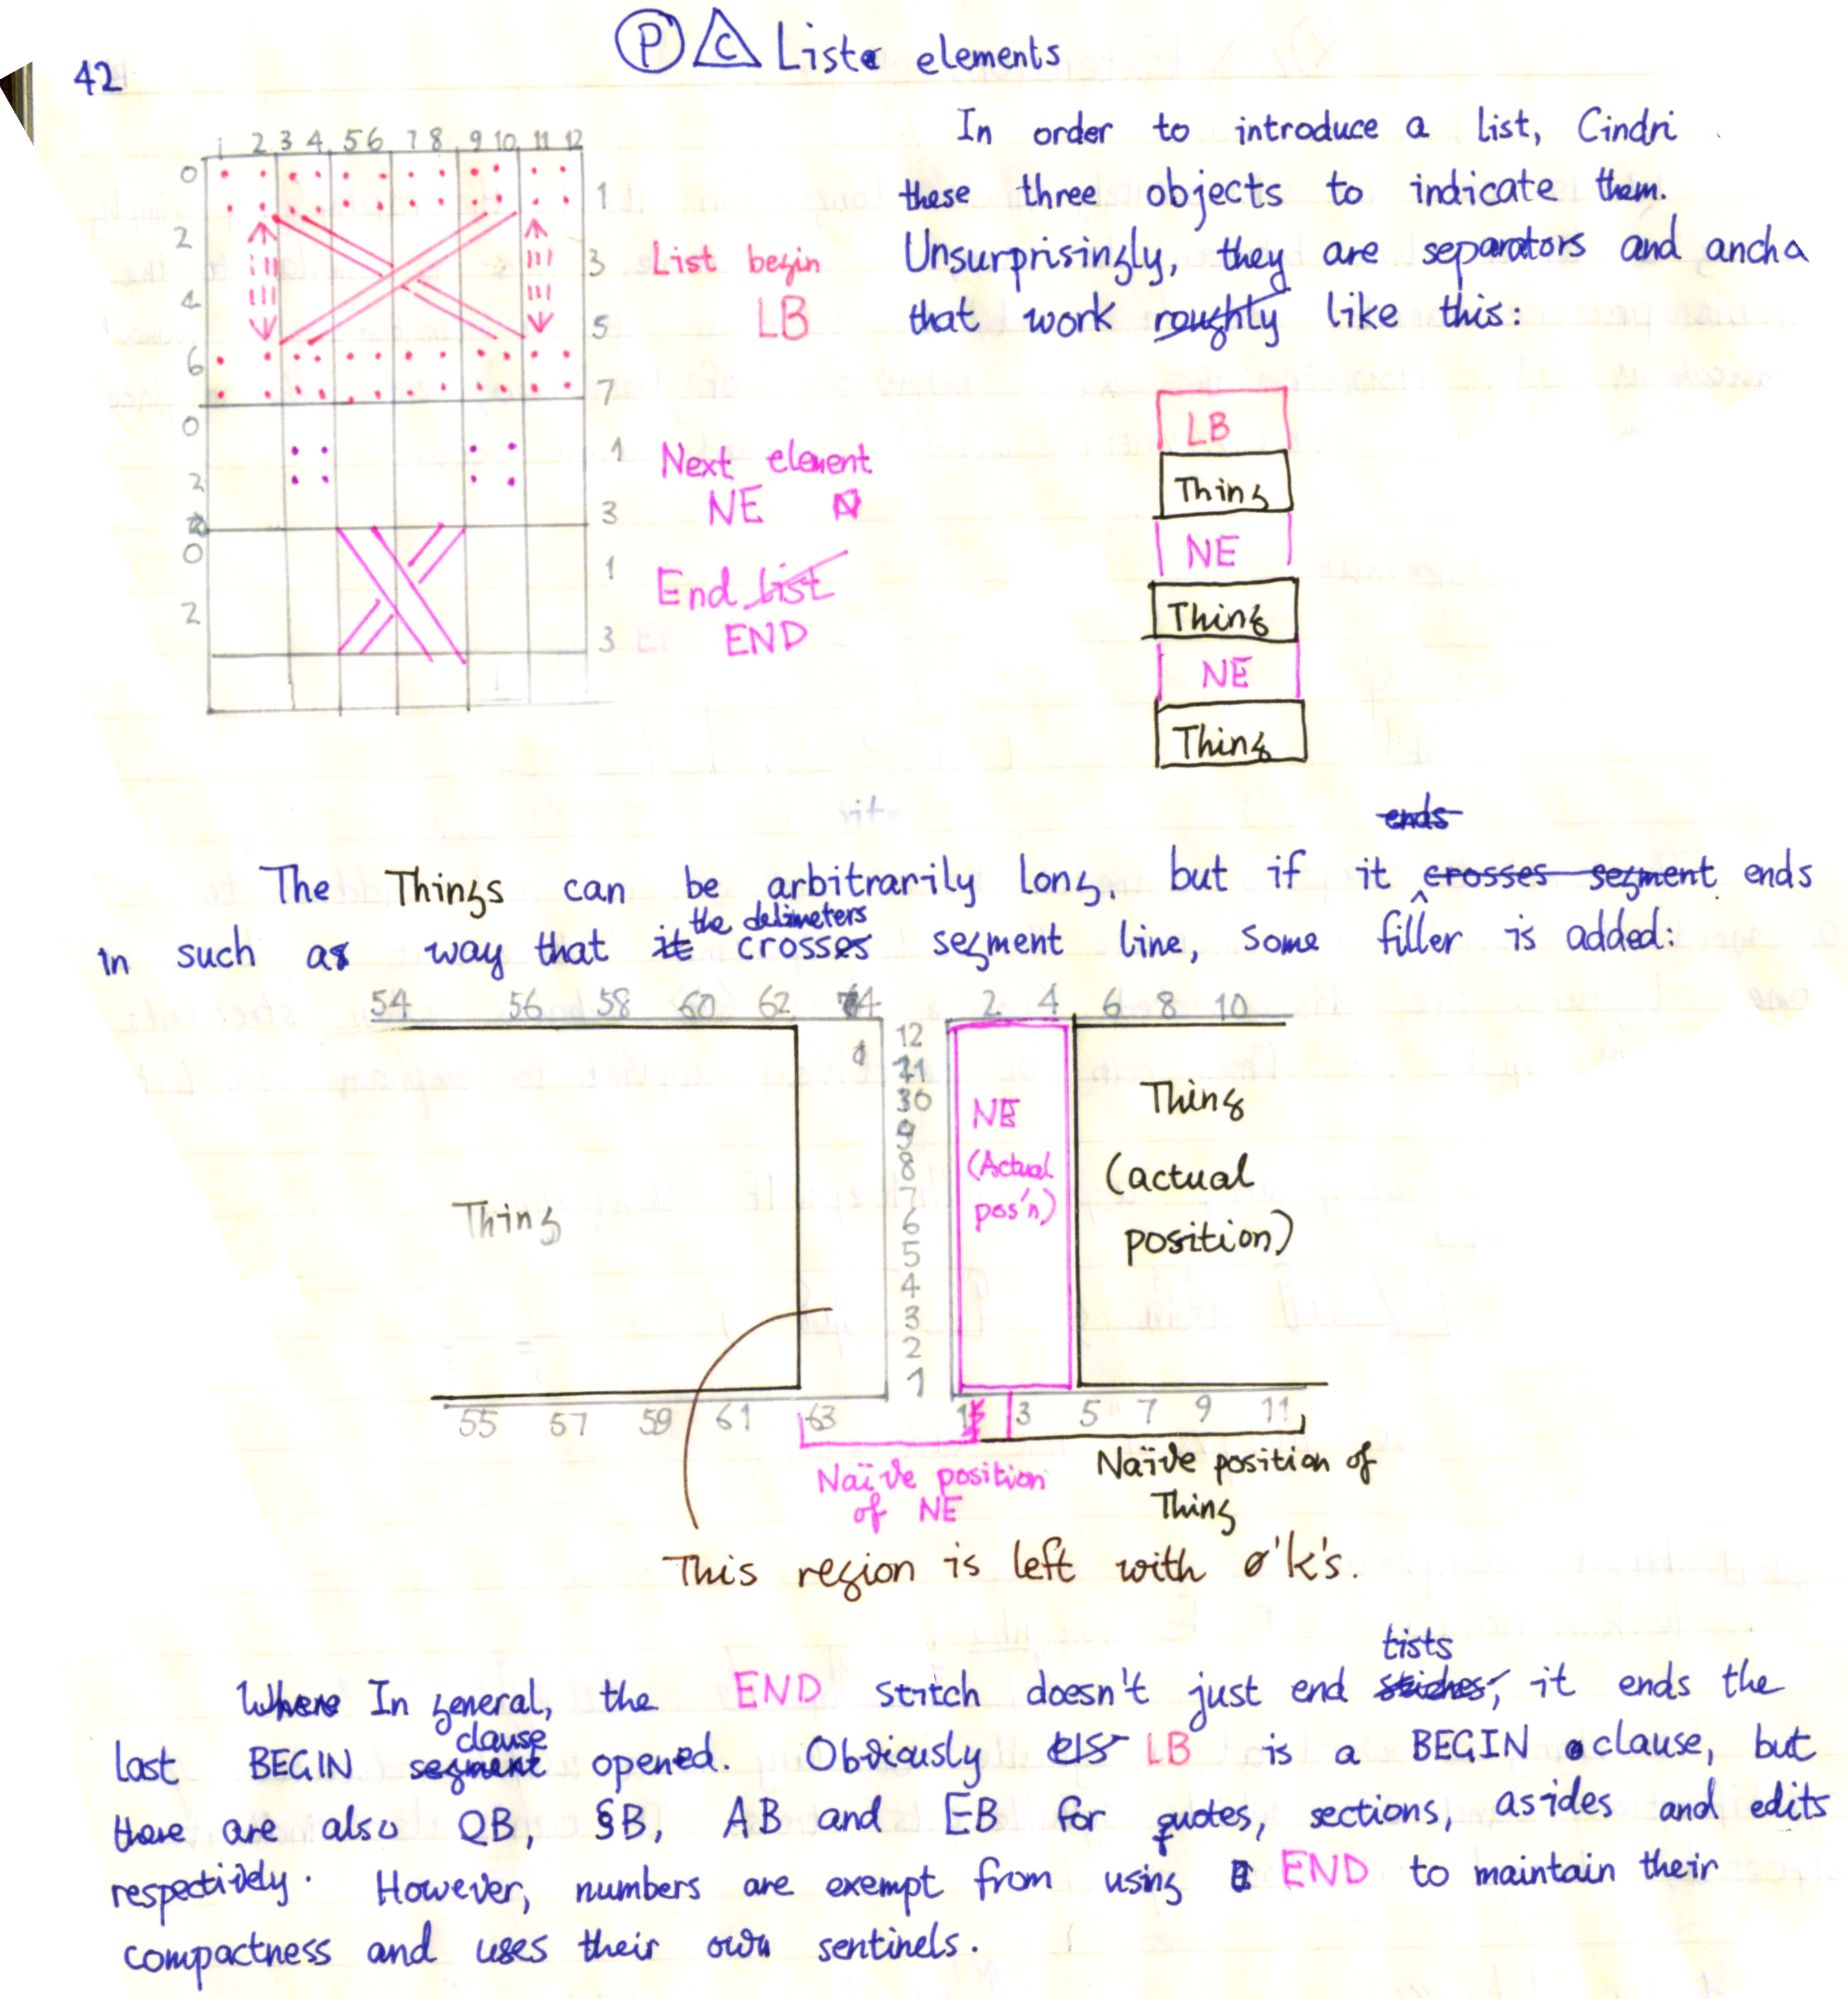 42
P C Lists elements
1 2 3 4 5 6 7 8 9 10 11 12
0
1
2
3
4
5
6
7
List begin
LB
0
1
2
3
Next element
NE
0
1
2
3
End list
END
In order to introduce a list, Cindri
these three objects to indicate them.
Unsurprisingly, they are separators and ancha
that work roughly like this:
LB
Thing
NE
Thing
NE
Thing
ends
The Things can be arbitrarily long, but if it crosses segment ends
the delimeters
in such a way that it crosses segment line, some filler is added:
54 56 58 60 62 64
2 4 6 8 10
12
11
10
9
8
7
6
5
4
3
2
1
Thing
NE
(Actual
pos'n)
Thing
(actual
position)
55 57 59 61 63
1 3 5 7 9 11
Naïve position
of NE
Naïve position of
Thing
This region is left with ø'k's.
lists
Where In general, the END stitch doesn't just end stiches, it ends the
clause
last BEGIN segment opened. Obviously LB is a BEGIN clause, but
there are also QB, §B, AB and EB for quotes, sections, asides and edits
respectively. However, numbers are exempt from using END to maintain their
compactness and uses their own sentinels.